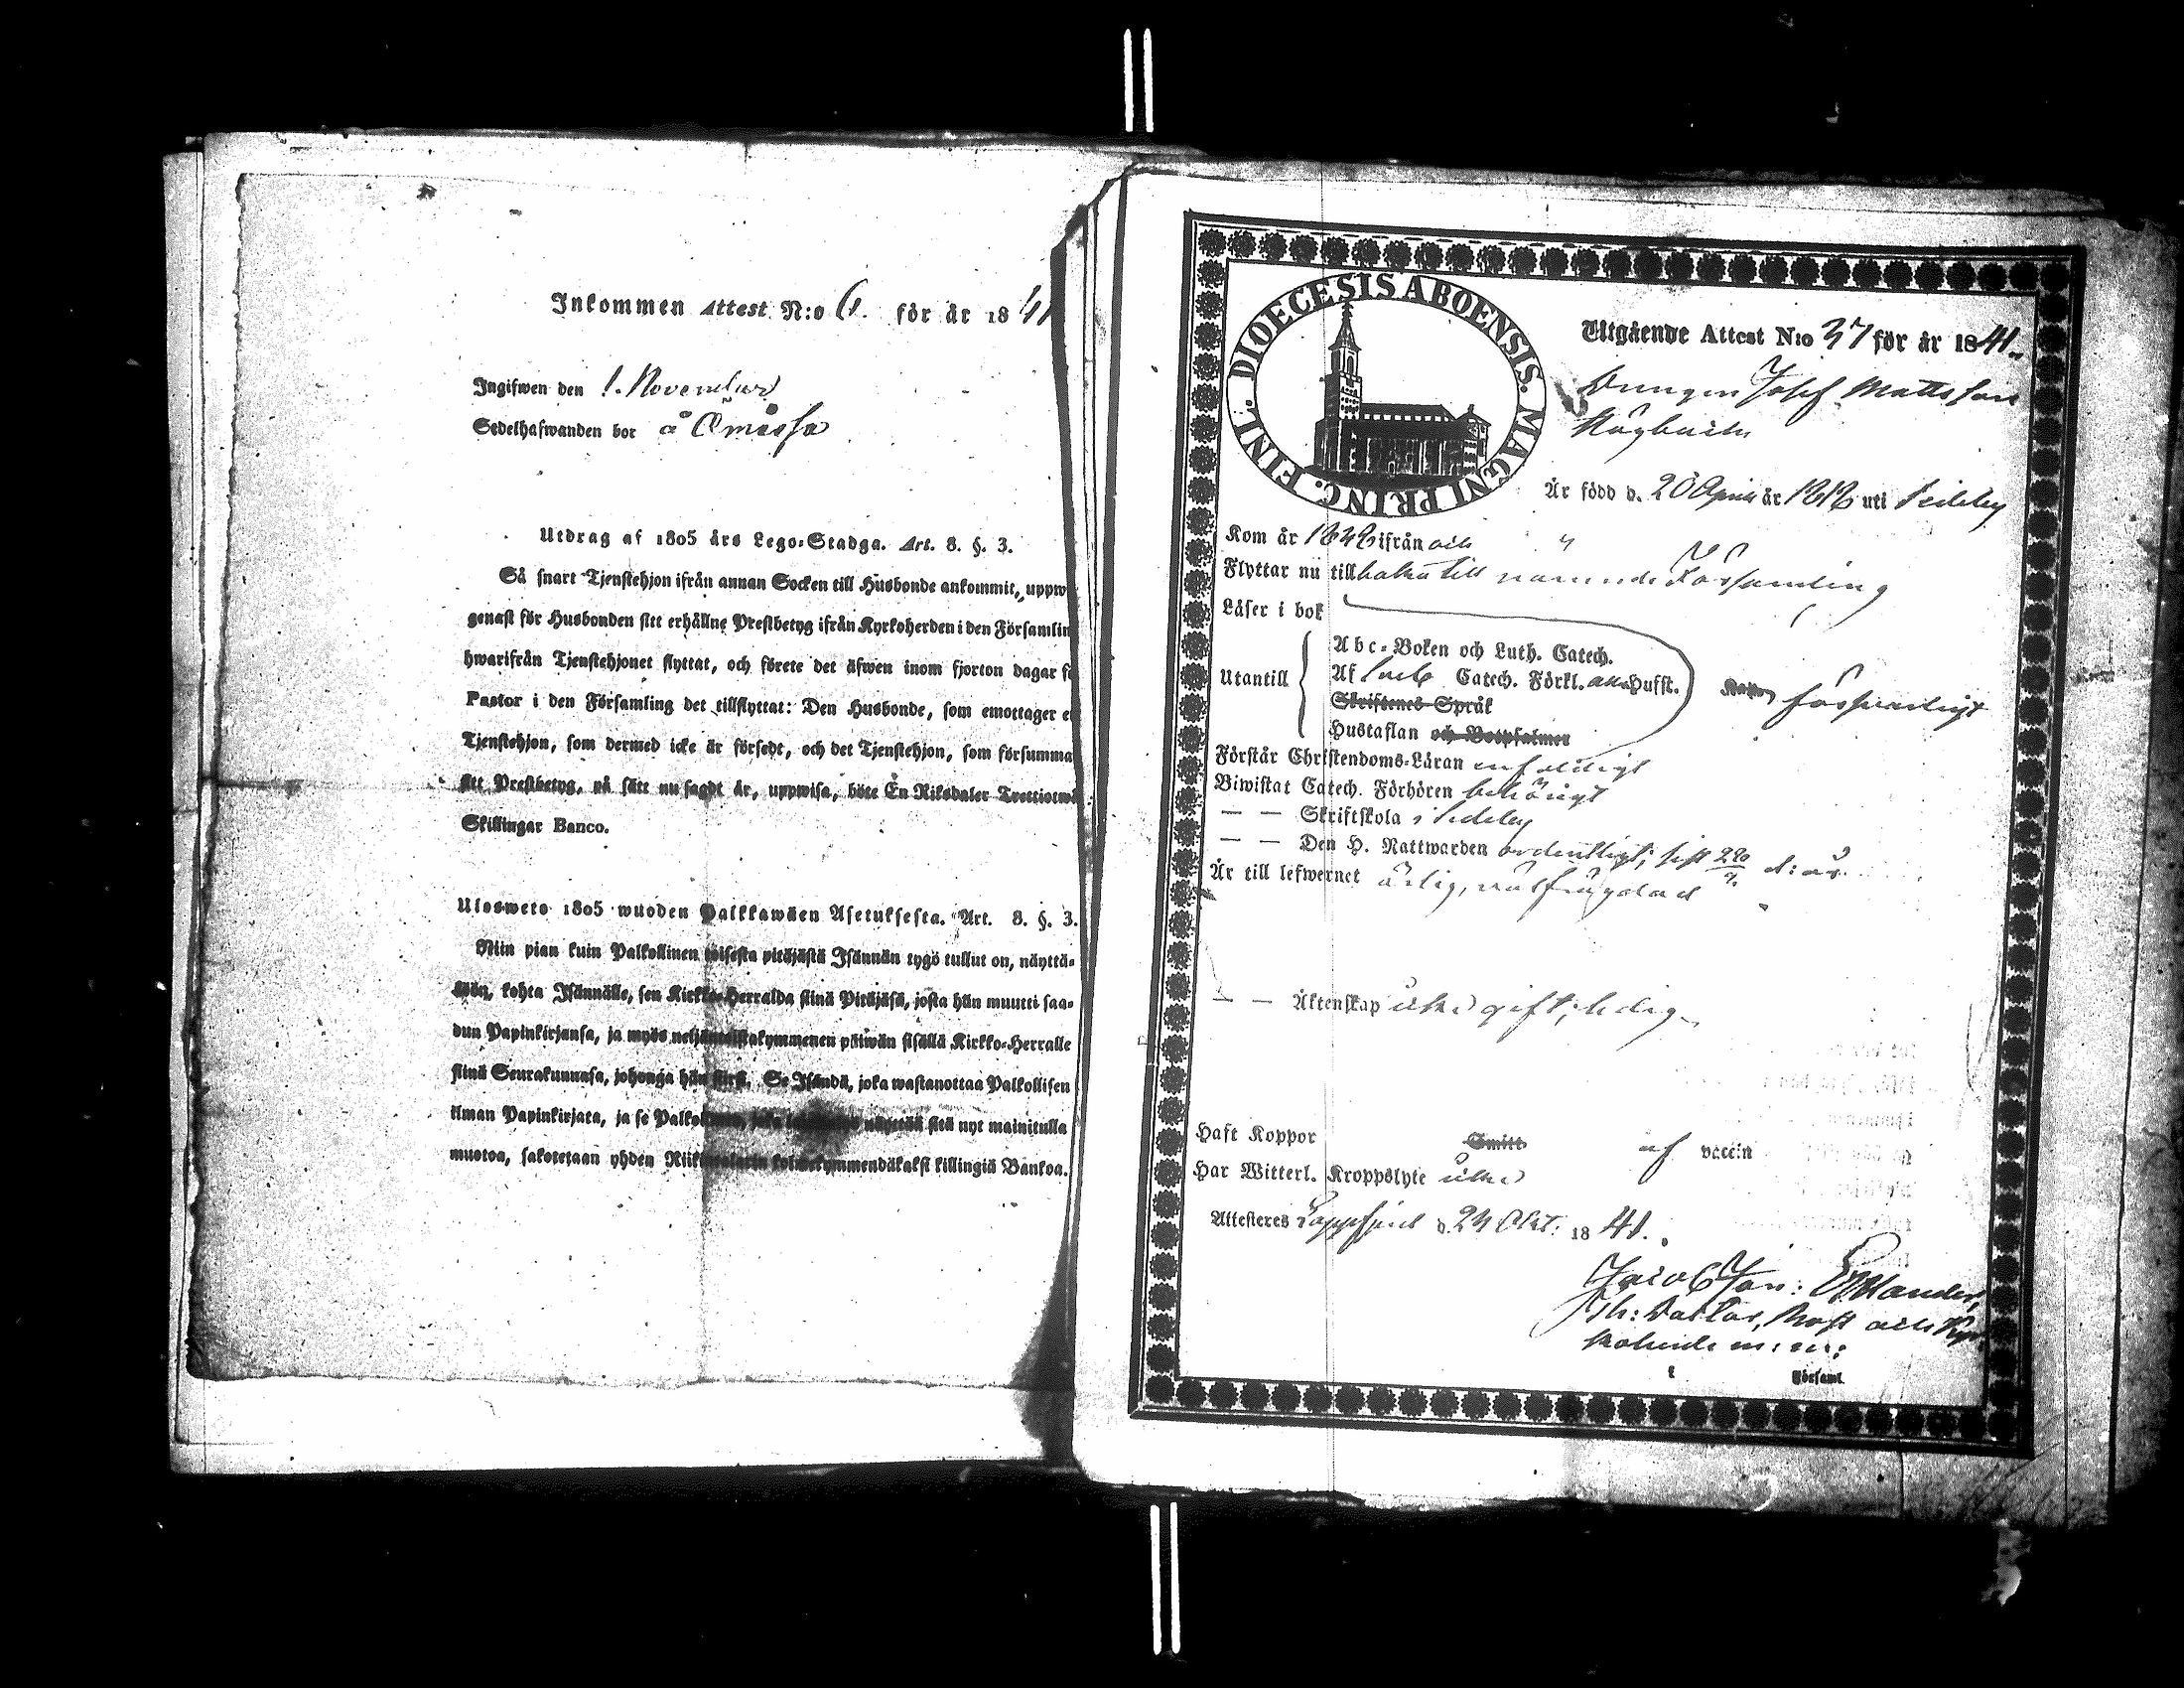 Inkommen Attest N:o 6. för år 1841
Ingifwen den 1. November
Sedelhafwanden bor å Ömossa
Utdrag af 1805 års Lego-Stadga. Art. 8. §. 3.
Så snart Tjenstehjon ifrån annan Socken till Husbonde ankommit, uppw
genast för Husbonden sitt erhållne Prestbetyg ifrån Kyrkoherden i den Församlin
hwarifrån Tjenstehjonet flyttat, och förete det äfwen inom fjorton dagar f
Pastor i den Församling det tillflyttat: Den Husbonde, som emottager e
Tjenstehjon, som dermed icke är försedt, och det Tjenstehjon, som försumma
sitt Prestbetyg, på sätt nu sagdt är, uppwisa, böte En Riksdaler Trettiotwå
Skillingar Banco.
Ulosweto 1805 wuoden Palkkawäen Asetuksesta. Art. 8. §. 3.
Niin pian kuin Palkollinen toisesta pitäjästä Isännän tygö tullut on, näyttä-
köön, kohta Isännälle, sen Kirkko-Herralda siinä Pitäjäsä, josta hän muutti saa-
dun Papinkirjansa, ja myös neljäntoistakymmenen päiwän sisällä Kirkko-Herralle
siinä Seurakunnasa, johonga hän siirsi. Se Isändä, joka wastanottaa Palkollisen
ilman Papinkirjata, ja se Palkollinen, joka näyttää sitä nyt mainitulla
muotoa, sakotetaan yhden Riikintalarin kolmekymmendäkaksi killingiä Bankoa.
DIOECESIS ABOENSIS. MAGNI PRINC. FINL.
Utgående Attest N:o 37 för år 1841.
Drengen Josef Mattsson
Högback
Är född d. 20 April år 1818 uti Sideby
Kom år 1848 ifrån och "
Flyttar nu till baka till nämnde Församling
Läser i bok
Abc-Boken och Luth. Catech.
Utantill Af Catech. Förkl. Hufst. försvarligt
Skriftenes Språk
Hustaflan och Botpsalmer
Förstår Christendoms-Läran enfaldigt
Biwistat Catech. Förhören behörigt
— — Skriftskola i Sideby
— — Den H. Nattwarden ordentligt; sist d: år.
Är till lefwernet ärlig, välfrägdad
— — Äktenskap icke gift; ledig
Haft Koppor Smitt af vaccin
Har Witterl. Kroppslyte icke
Attesteres Lappfjärd d. 24 Oct: 1841.
Jacob Jon: Estlander,
Th: Doctor, Prost och Kyr-
koherde m: m:
i Församl.